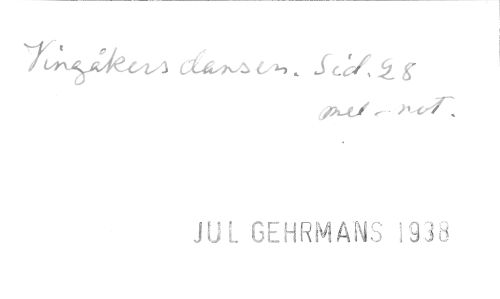 Vingåkersdansen. Sid. 28
mel-not.
JUL GEHRMANS 1938